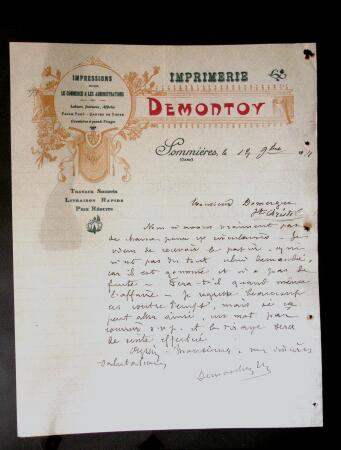 IMPRESSIONS
POUR
LE COMMERCE & LES ADMINISTRATIONS
Labeurs, Journaux, Affiches
Circulaires à grands Tirages
IMPRIMERIE
DEMONTOY
Sommières, le 15 9bre
(GARD)
TRAVAUX SOIGNÉS
LIVRAISON RAPIDE
PRIX RÉDUITS
Monsieur Domergue
St Christol
Nous n'avons vraiment pas
de chance pour vos circulaires. Je
viens de recevoir le papier, qui
n'est pas du tout celui demandé,
car il est gommé et n'a pas de
Fera-t-il quand même
l'affaire. Je regrette beaucoup
ce contre temps, mais si ça
peut aller ainsi, un mot par
courrier s.v.p. et le tirage sera
de suite effectué
Monsieur, mes sincères
salutations
Demontoy